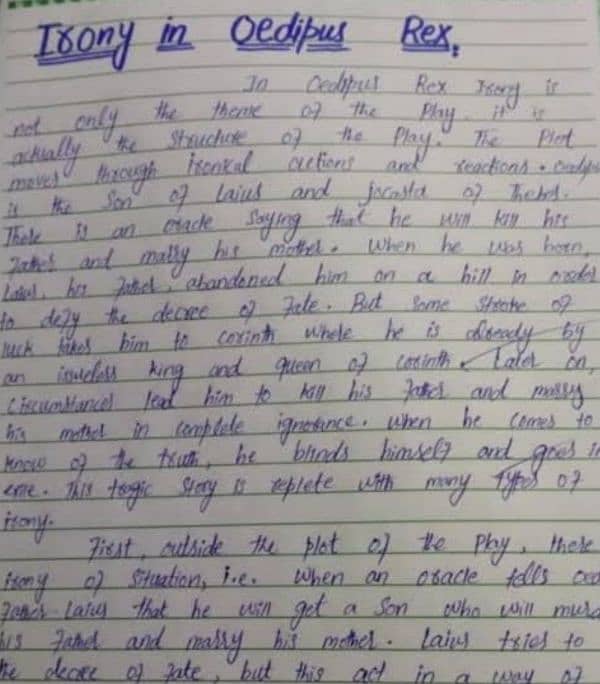 Irony in Oedipus Rex.
In Oedipus Rex Irony is
not only the theme of the Play. it is
actually the structure of the Play. The Plot
moves through ironical actions and reactions. Oedipu
is the Son of Laius and jocasta of Thebes.
There is an oracle saying that he will kill his
Father and marry his mother. When he was born,
Laius, his Father, abandoned him on a hill in order
to defy the decree of Fate. But some stroke of
luck takes him to corinth where he is by
an issueless king and queen of corinth. Later on,
circumstances lead him to kill his Father and marry
his mother in complete ignorance. When he comes to
know of the truth, he blinds himself and goes in
exile. This tragic story is replete with many types of
irony.
First, outside the plot of the Play, there
irony of Situation, i.e. when an oracle tells oed
Father Laius that he will get a Son who will murd
his Father and marry his mother. Laius tries to
the decree of Fate, but this act in a way of